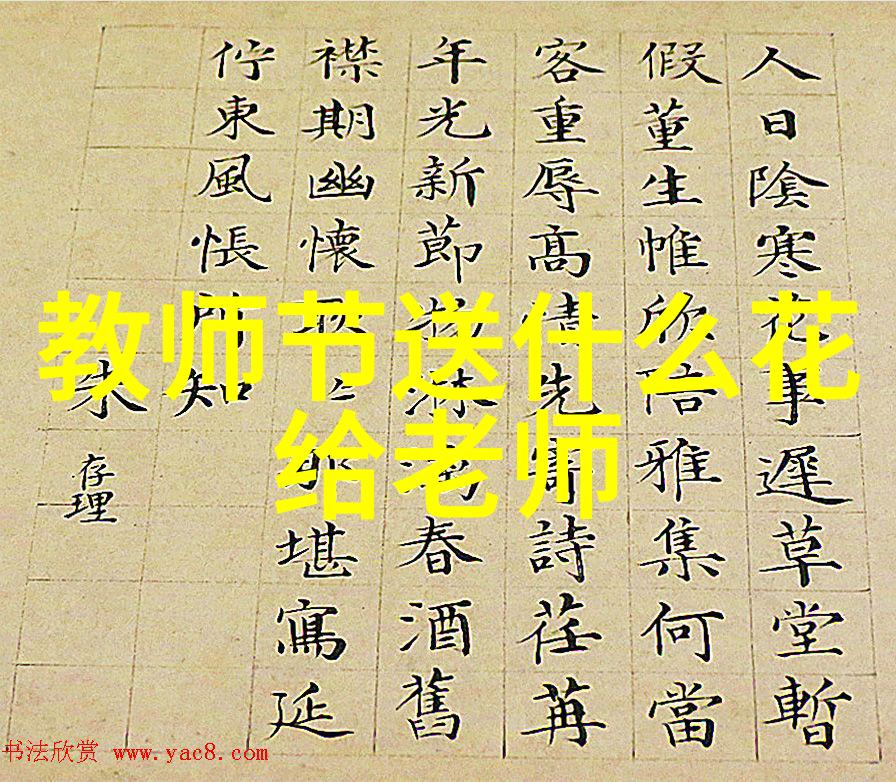 教师节送什么花
给老师
人日陰寒花事遲草堂暫
假董生帷欣陪雅集何當
客重辱高情先寄詩荏苒
年光新節物淋漓春酒舊
襟期幽懷堪寫延
佇東風悵知
朱
存理
书法欣赏 www.yac8.com